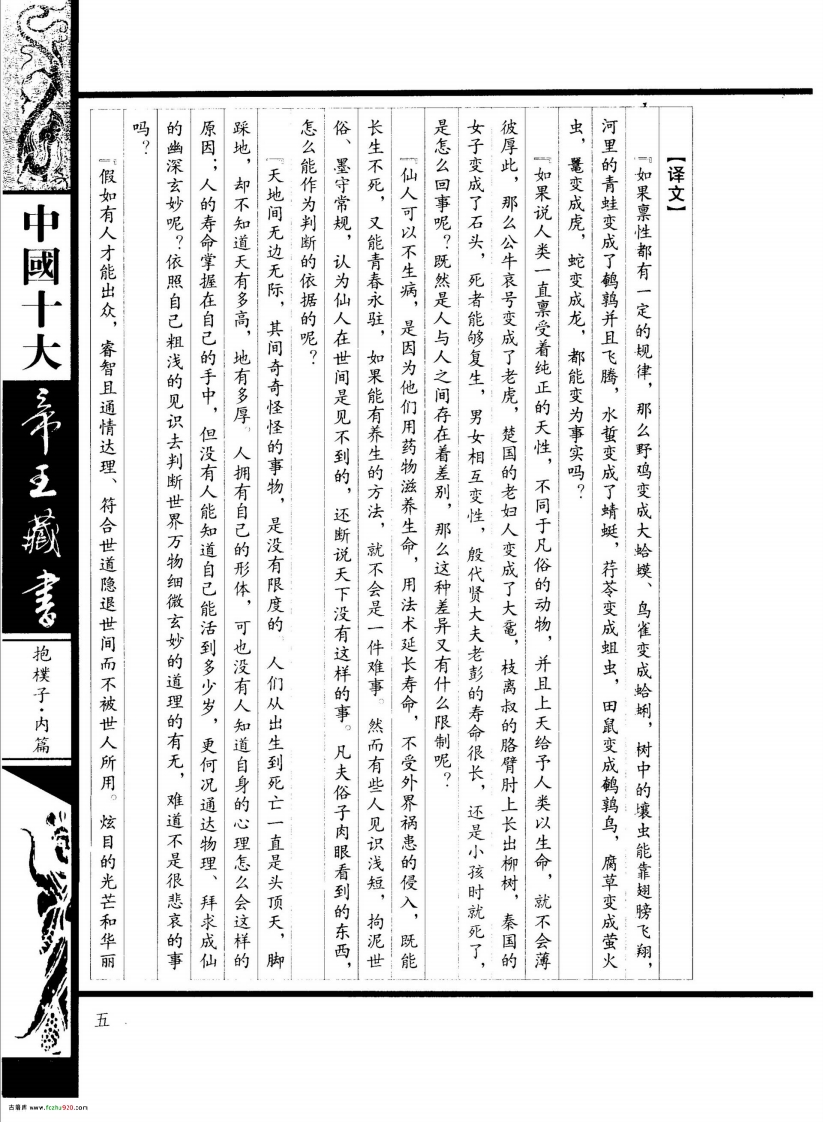 【译文】
『如果禀性都有一定的规律，那么野鸡变成大蛤蟆、鸟雀变成蛤蜊，树中的壤虫能靠翅膀飞翔，
河里的青蛙变成了鹌鹑并且飞腾，水蛭变成了蜻蜓，荇苓变成蛆虫，田鼠变成鹌鹑鸟，腐草变成萤火
虫，鼍变成虎，蛇变成龙，都能变为事实吗？
『如果说人类一直禀受着纯正的天性，不同于凡俗的动物，并且上天给予人类以生命，就不会薄
彼厚此，那么公牛哀号变成了老虎，楚国的老妇人变成了大鼋，枝离叔的胳臂肘上长出柳树，秦国的
女子变成了石头，死者能够复生，男女相互变性，殷代贤大夫老彭的寿命很长，还是小孩时就死了，
是怎么回事呢？既然是人与人之间存在着差别，那么这种差异又有什么限制呢？
『仙人可以不生病，是因为他们用药物滋养生命，用法术延长寿命，不受外界祸患的侵入，既能
长生不死，又能青春永驻，如果能有养生的方法，就不会是一件难事。然而有些人见识浅短，拘泥世
俗、墨守常规，认为仙人在世间是见不到的，还断说天下没有这样的事。凡夫俗子肉眼看到的东西，
怎么能作为判断的依据的呢？
『天地间无边无际，其间奇奇怪怪的事物，是没有限度的。人们从出生到死亡一直是头顶天，脚
踩地，却不知道天有多高，地有多厚。人拥有自己的形体，可也没有人知道自身的心理怎么会这样的
原因；人的寿命掌握在自己的手中，但没有人能知道自己能活到多少岁，更何况通达物理、拜求成仙
的幽深玄妙呢？依照自己粗浅的见识去判断世界万物细微玄妙的道理的有无，难道不是很悲哀的事
吗？
『假如有人才能出众，睿智且通情达理、符合世道隐退世间而不被世人所用。炫目的光芒和华丽
中國十大
帝王藏書
抱樸子·内篇
五
古籍库 www.fczhu920.com